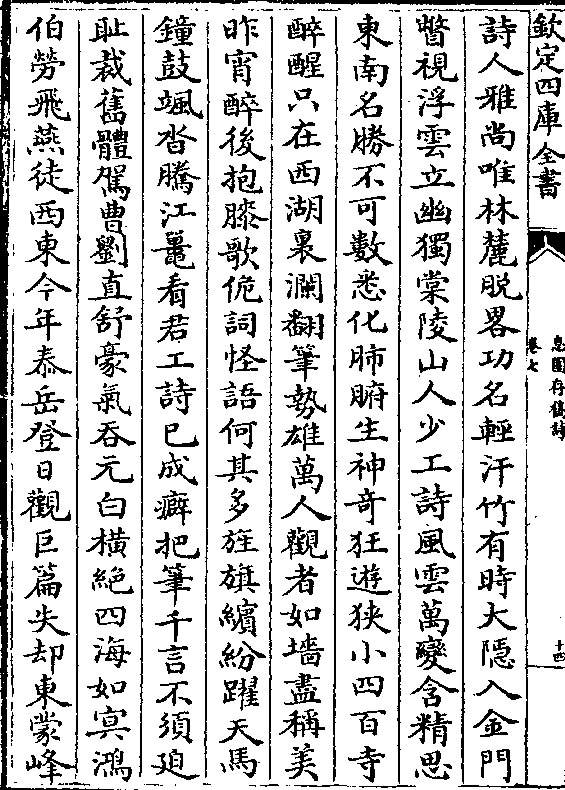 欽定四庫全書
息園存稿詩
卷七
十四
詩人雅尚唯林麓脱畧功名輕汗竹有時大隠入金門
瞥視浮雲立幽獨棠陵山人少工詩風雲萬變含精思
東南名勝不可數悉化肺腑生神奇狂遊狭小四百寺
醉醒只在西湖裏瀾翻筆勢雄萬人觀者如墻盡稱美
昨宵醉後抱膝歌侻詞怪語何其多旌旗繽紛躍天馬
鐘鼓颯沓騰江鼍看君工詩已成癖把筆千言不須廹
耻裁舊體駕曹劉直舒豪氣吞元白橫絶四海如㝠鴻
伯勞飛燕徒西東今年泰岳登日觀巨篇失却東蒙峰